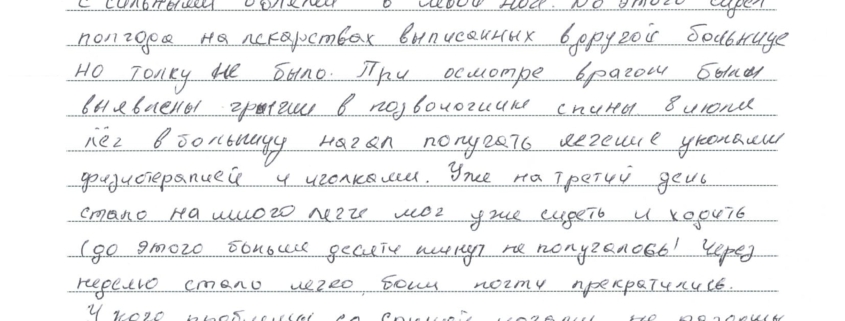 с сильными болями в левой ноге. До этого сидел
полгода на лекарствах выписанных в другой больнице
но толку не было. При осмотре врагом были
выявлены грыжи в позвоночнике спины 8 июля
лёг в больницу начал получать лечение уколами
физиотерапией и иголками. Уже на третий день
стало на много легче мог уже сидеть и ходить
(до этого больше десяти минут не получалось! Через
неделю стало легко, боли почти прекратились.
У кого проблемы со спиной